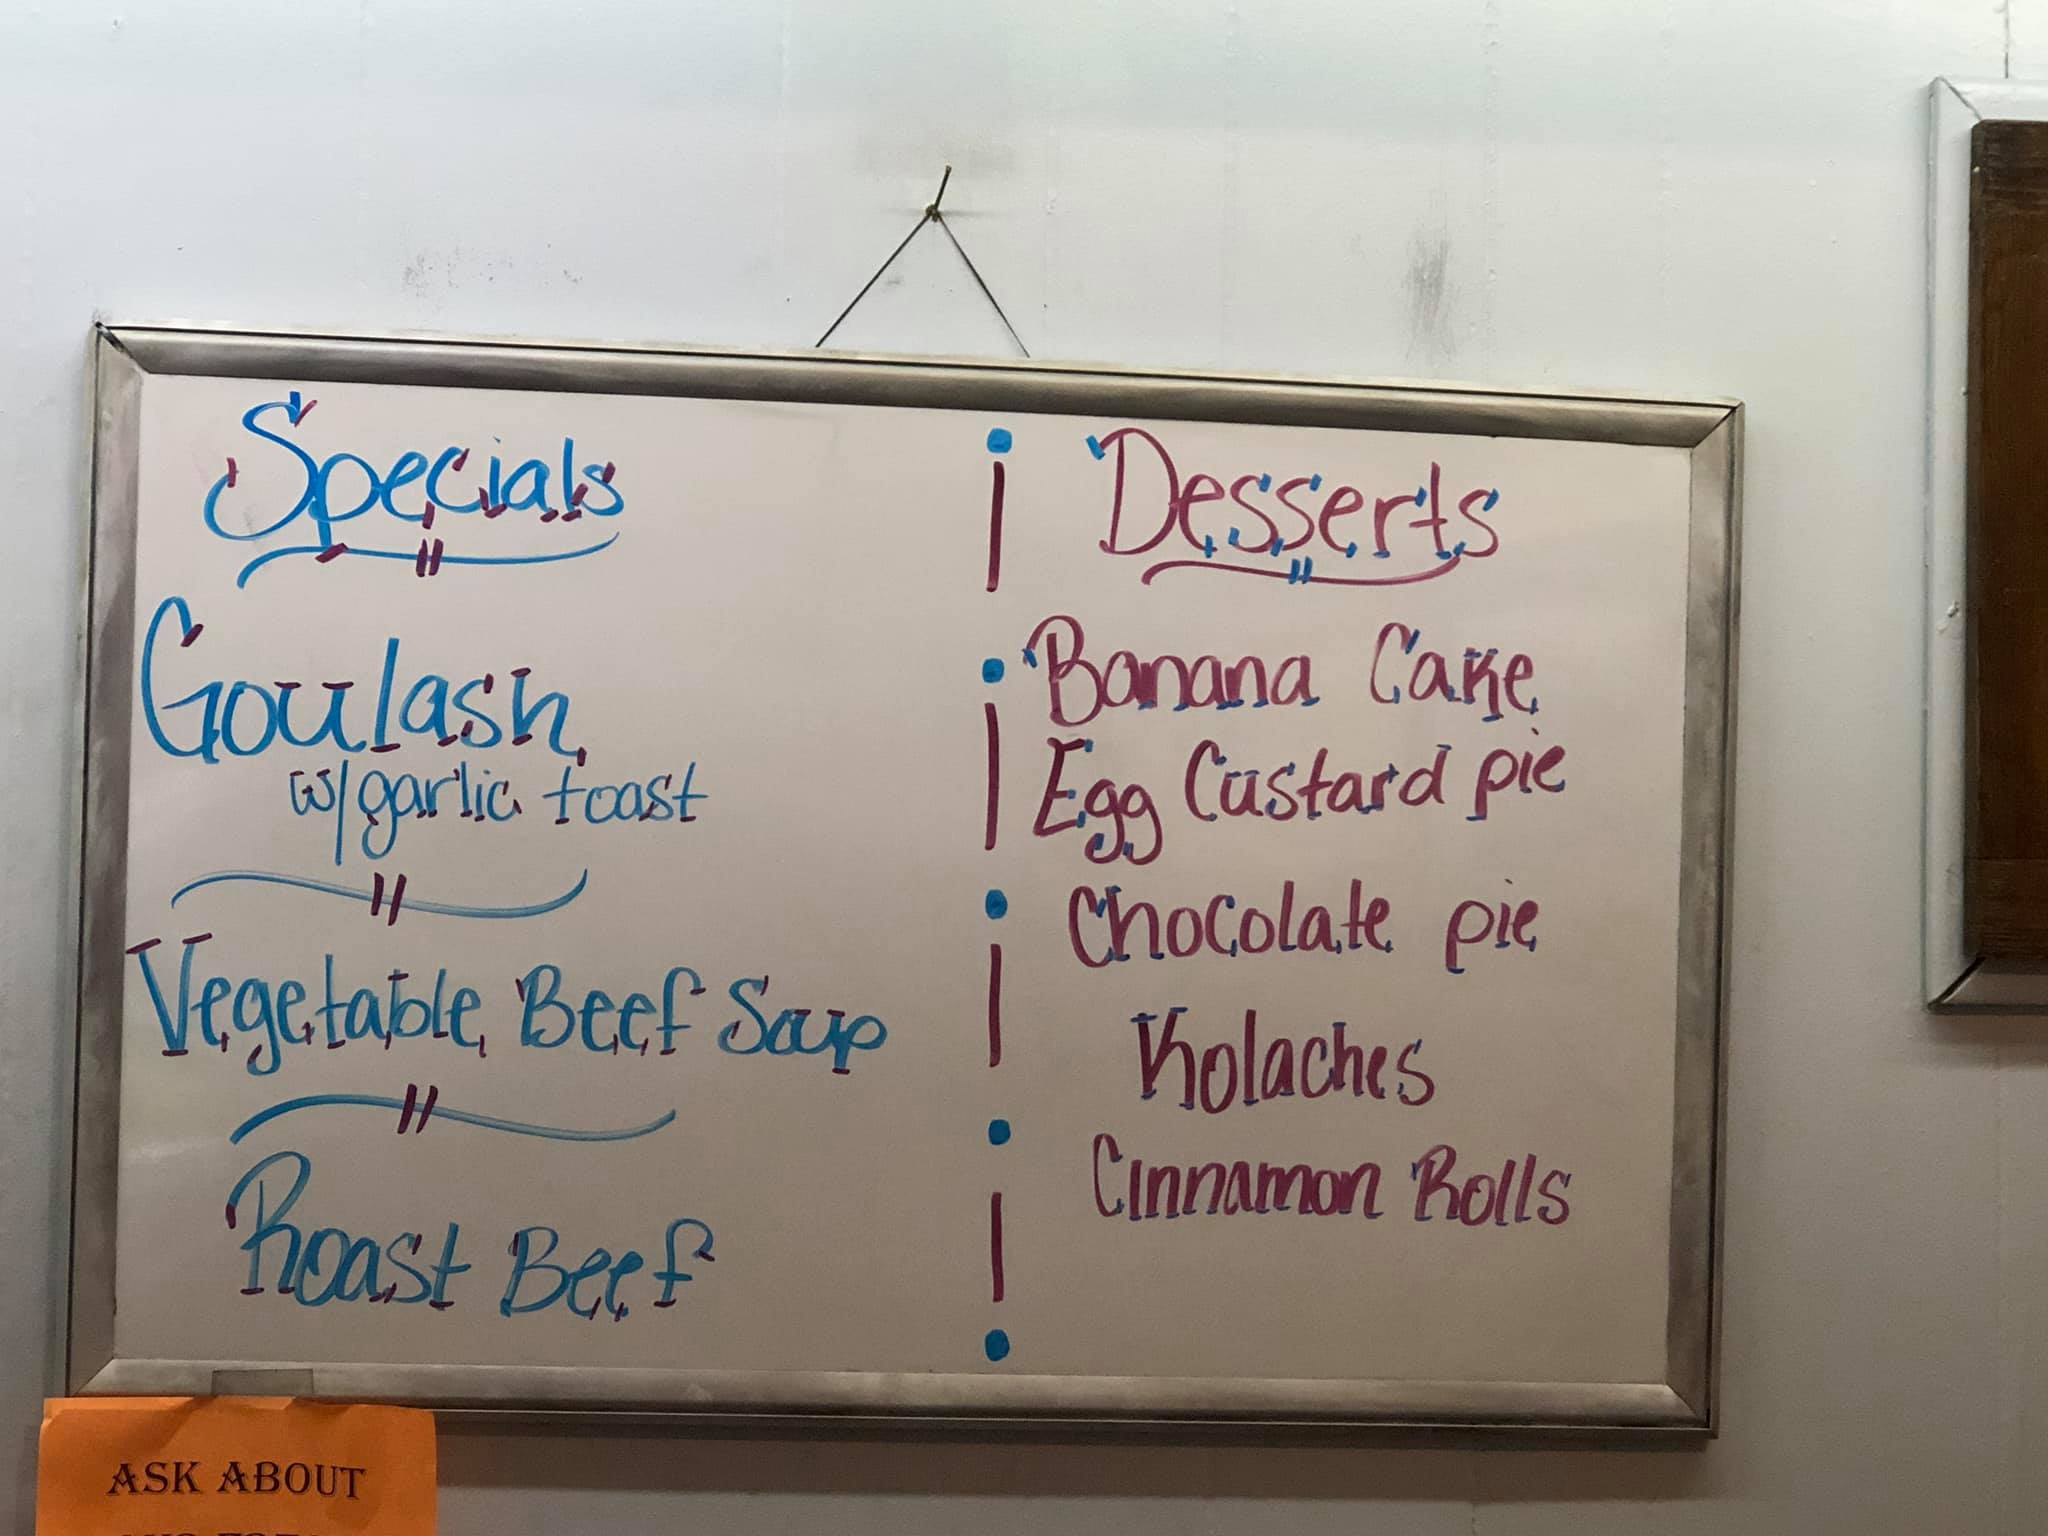 Specials
Goulash
w/garlic toast
Vegetable Beef Soup
Roast Beef
Desserts
Banana Cake
Egg Custard pie
Chocolate pie
Kolaches
Cinnamon Rolls
ASK ABOUT